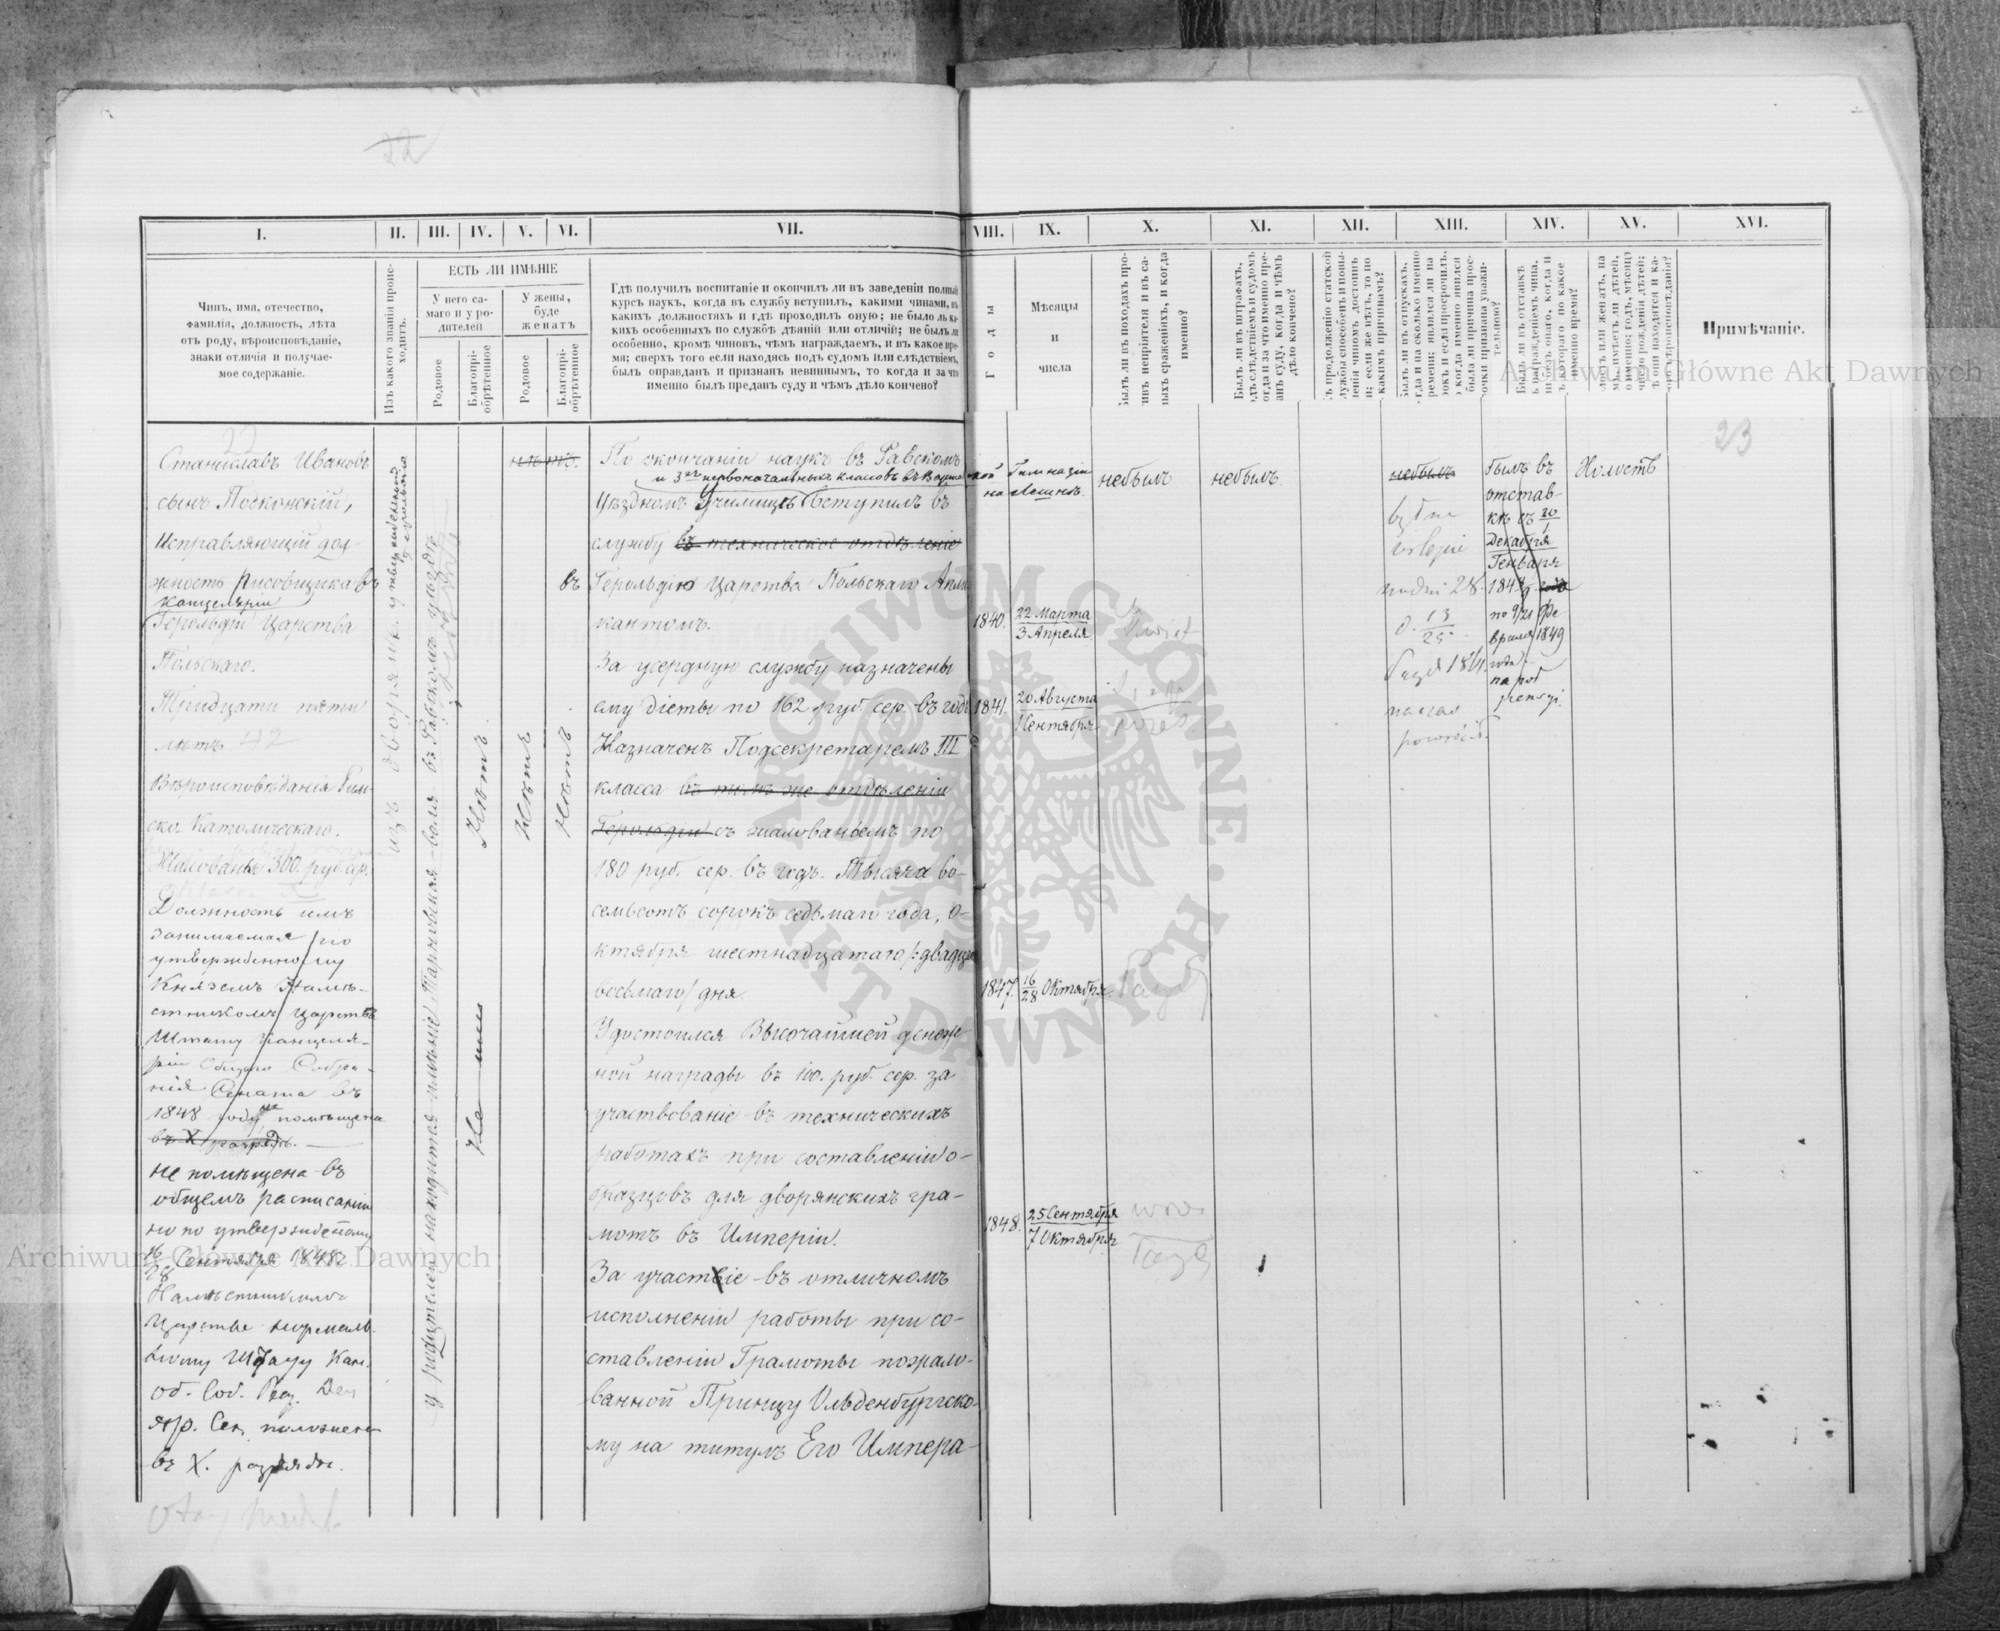 22
I.
II.
III.
IV.
V.
VI.
VII.
VIII.
IX.
X.
XI.
XII.
XIII.
XIV.
XV.
XVI.
Чинъ, имя, отечество,
фамилія, должность, лѣта
отъ роду, вѣроисповѣданіе,
знаки отличія и получае-
мое содержаніе.
Изъ какого званія проис-
ходитъ.
ЕСТЬ ЛИ ИМѢНІЕ
У него са-
маго и у ро-
дителей
У жены,
буде
женатъ
Родовое
Благопрі-
обрѣтенное
Родовое
Благопрі-
обрѣтенное
Гдѣ получилъ воспитаніе и окончилъ ли въ заведеніи полный
курсъ наукъ, когда въ службу вступилъ, какими чинами, въ
какихъ должностяхъ и гдѣ проходилъ оную; не было ль ка-
кихъ особенныхъ по службѣ дѣяній или отличій; не былъ ли
особенно, кромѣ чиновъ, чѣмъ награждаемъ, и въ какое вре-
мя; сверхъ того если находясь подъ судомъ или слѣдствіемъ,
былъ оправданъ и признанъ невиннымъ, то когда и за что
именно былъ преданъ суду и чѣмъ дѣло кончено?
Годы
Мѣсяцы
и
числа
былъ ли въ походахъ про-
ивъ непріятеля и въ са-
ныхъ сраженіяхъ, и когда
именно?
Былъ ли въ штрафахъ,
одъ слѣдствіемъ и судомъ
огда и за что именно пре-
анъ суду, когда и чѣмъ
дѣло кончено?
ъ продолженію статской
лужбы способенъ и повы-
енія чиномъ достоинъ
и; если же нѣтъ, то по
какимъ причинамъ?
былъ ли въ отпускахъ,
гда и на сколько именно
ремени; явился ли на
рокъ и если просрочилъ,
о когда именно явился
была ли причина прос-
очки признана уважи-
тельною?
Былъ ли въ отставкѣ
ъ награжденіемъ чина,
ли безъ онаго, когда и
ъ котораго по какое
именно время?
лостъ или женатъ, на
мъ, имѣетъ ли дѣтей,
о именно; годъ, мѣсяцъ
число рожденія дѣтей;
ѣ они находятся и ка-
о вѣроисповѣданія?
Примѣчаніе.
22
Станіславъ Ивановъ
сынъ Подконскій,
Исправляющій дол-
жность Рисовщика въ
Канцеляріи
Герольдіи Царства
Польскаго.
Тридцати пяти
лѣтъ 42
Вѣроисповѣданія Рим-
ско Католическаго.
Жалованья 300. руб. сер.
Должность имъ
занимаемая по
утвержденному
Княземъ Намѣ-
стникомъ Царства
Штату Канцеля-
ріи Общаго Собра-
нія Сената въ
1848 году не помѣщена
въ X разрядъ.
не помѣщена въ
общемъ расписаніи
но по утвержденному
16/28 Сентября 1848 г
Намѣстникомъ
Царства нормаль-
ному Штату Кан.
Об. Соб.
Сен. положена
въ X. разрядъ.
изъ дворянъ утвержденный
Герольдіею
у родителей находится имѣніе Тарновская-воля въ Равскомъ уѣздѣ.
Нѣтъ.
Нѣтъ
Нѣтъ
По окончаніи наукъ въ Равскомъ
и 3хъ первоначальныхъ классовъ въ Варша
ской Гимназіи
на
Уѣздномъ Училищѣ вступилъ въ
службу въ техническое отдѣленіе
въ Герольдію Царства Польскаго Апли-
кантомъ.
1840.
22 Марта
3 Апреля
За усердную службу назначены
ему діеты по 162 руб. сер. въ годъ
1841.
20 Августа
1 Сентября
Назначенъ Подсекретаремъ III
класса въ томъ же отдѣленіи
Герольдіи съ жалованьемъ по
180 руб. сер. въ годъ. Тысяча во-
семьсотъ сорокъ седьмаго года, О-
ктября шестнадцатаго /:двадцать
восьмаго/ дня.
1847.
16/28 Октября.
Удостоился Высочайшей денеж-
ной награды въ 100. руб. сер. за
участвованіе въ техническихъ
работахъ при составленіи о-
бразцовъ для дворянскихъ гра-
мотъ въ Имперіи.
1848.
25 Сентября
7 Октября
За участіе въ отличномъ
исполненіи работы при со-
ставленіи Грамоты пожало-
ванной Принцу Ольденбургско-
му на титулъ Его Импера-
небылъ
небылъ.
небылъ
был в
13/25
Былъ въ
отстав-
кѣ съ 20/1
Декабря
Генваря
184
по 9/21 Фе
враля 1849
года
Холостъ
23
Archiwum Główne Akt Dawnych
Archiwum Główne Akt Dawnych
ARCHIWUM GŁÓWNE AKT DAWNYCH